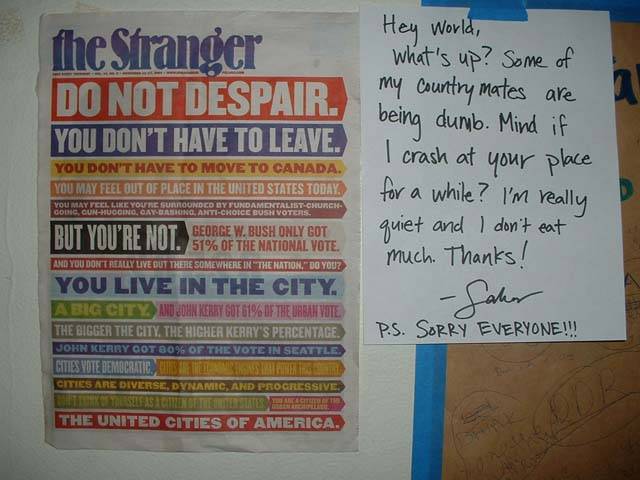 the Stranger
DO NOT DESPAIR.
YOU DON'T HAVE TO LEAVE.
YOU DON'T HAVE TO MOVE TO CANADA.
YOU MAY FEEL OUT OF PLACE IN THE UNITED STATES TODAY.
YOU MAY FEEL LIKE YOU'RE SURROUNDED BY FUNDAMENTALIST-CHURCH-
GOING, GUN-HUGGING, GAY-BASHING, ANTI-CHOICE BUSH VOTERS.
BUT YOU'RE NOT.
GEORGE W. BUSH ONLY GOT
51% OF THE NATIONAL VOTE.
AND YOU DON'T REALLY LIVE OUT THERE SOMEWHERE IN "THE NATION," DO YOU?
YOU LIVE IN THE CITY.
A BIG CITY.
AND JOHN KERRY GOT 61% OF THE URBAN VOTE.
THE BIGGER THE CITY, THE HIGHER KERRY'S PERCENTAGE.
JOHN KERRY GOT 80% OF THE VOTE IN SEATTLE.
CITIES VOTE DEMOCRATIC.
CITIES ARE DIVERSE, DYNAMIC, AND PROGRESSIVE.
DON'T THINK OF YOURSELF AS A CITIZEN OF THE UNITED STATES.
YOU ARE A CITIZEN OF THE
URBAN ARCHIPELAGO.
THE UNITED CITIES OF AMERICA.
Hey World,
What's up? Some of
my countrymates are
being dumb. Mind if
I crash at your place
for a while? I'm really
quiet and I don't eat
much. Thanks!
P.S. SORRY EVERYONE!!!